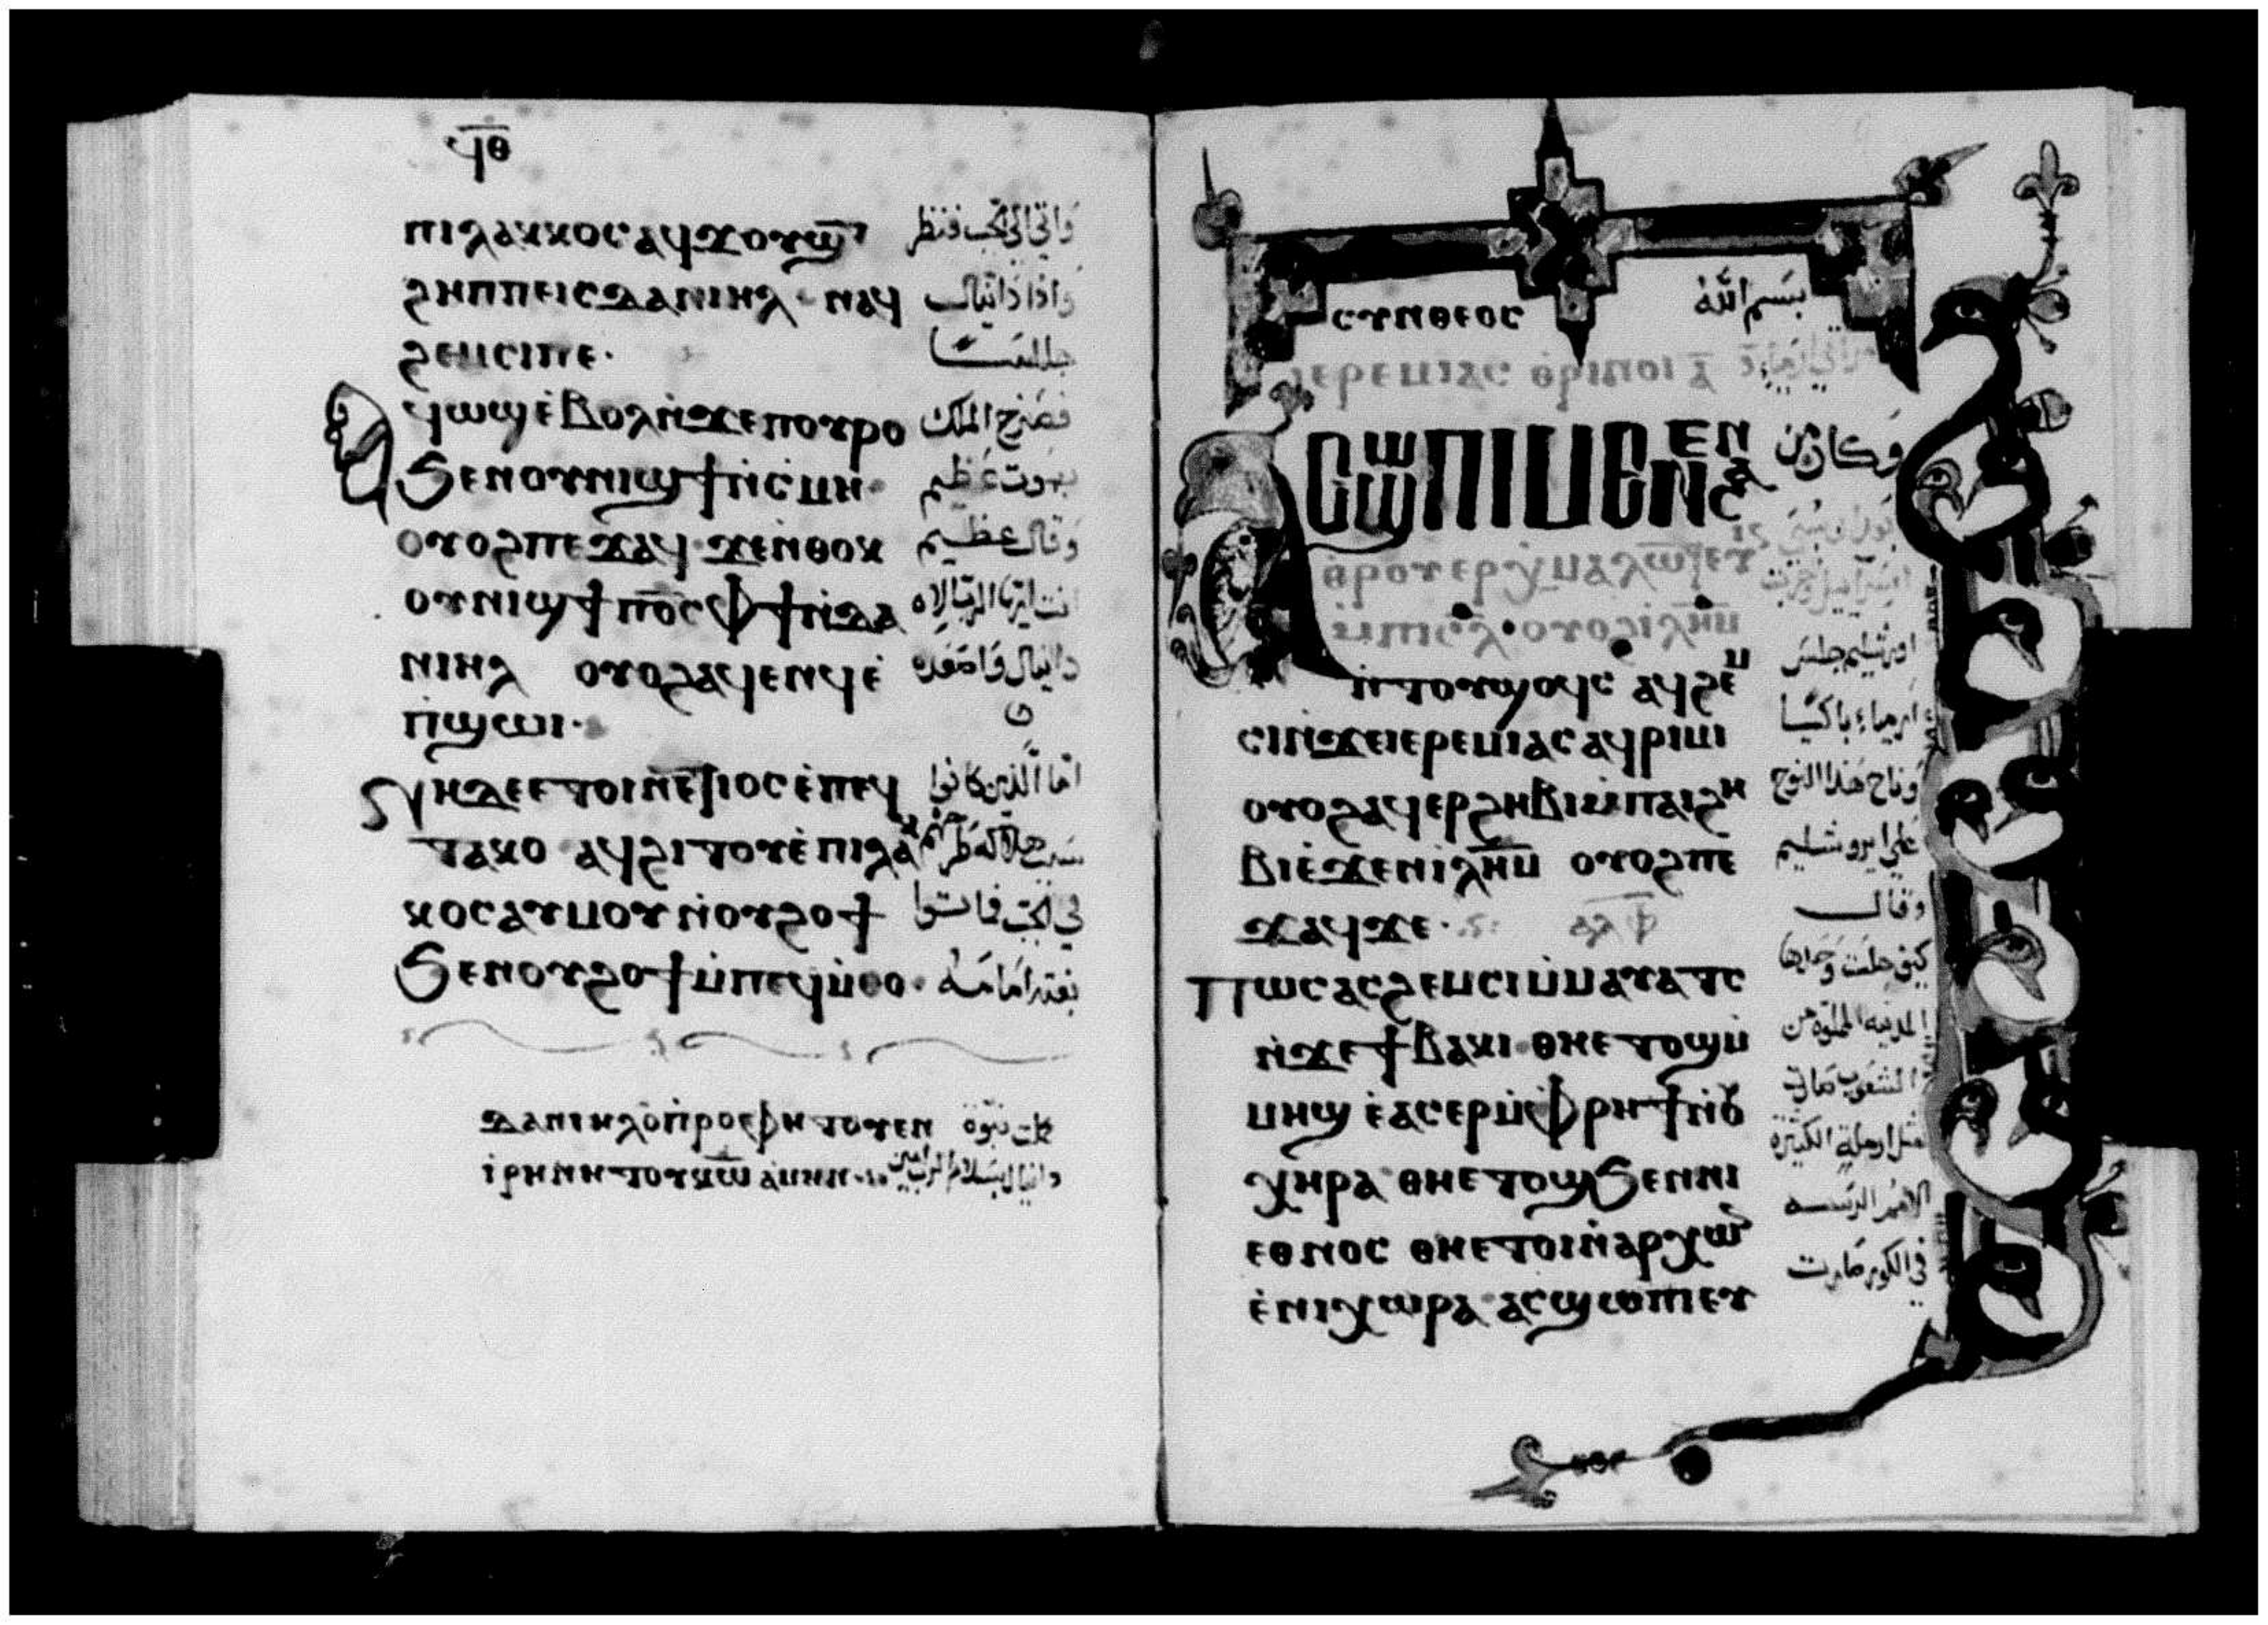 ϥⲑ
ⲡⲓⲗⲁⲕⲕⲟⲥ ⲁϥϫⲟⲩϣⲧ
ϩⲏⲡⲡⲉ ⲓⲥ ⲇⲁⲛⲓⲏⲗ ⲛⲁϥ
ϩⲉⲙⲥⲓ ⲡⲉ·
ϥⲱϣ ⲉ̀ⲃⲟⲗ ⲛ̀ϫⲉ ⲡⲟⲩⲣⲟ
فصرخ الملك
ϧⲉⲛ ⲟⲩⲛⲓϣϯ ⲛ̀ⲥⲙⲏ·
بصوت عظيم
ⲟⲩⲟϩ ⲡⲉϫⲁϥ ϫⲉ ⲛ̀ⲑⲟⲕ
وقال عظيم
ⲟⲩⲛⲓϣϯ ⲡⲟ̅ⲥ̅ ⲫϯ ⲛ̀ⲇⲁ
انت ايها الرب الاله
ⲛⲓⲏⲗ ⲟⲩⲟϩ ⲁϥⲉⲛϥ ⲉ̀
دانيال واصعده
ⲡ̀ϣⲱⲓ·
ⲛⲏ ⲇⲉ ⲉⲧⲟⲓ ⲛ̀ⲉⲧⲓⲟⲥ ⲉ̀ⲡⲉϥ
اما الذين كانوا
ⲧⲁⲕⲟ ⲁϥϩⲓⲧⲟⲩ ⲉ̀ⲡⲓⲗⲁⲕ
ⲕⲟⲥ ⲁⲩⲙⲟⲩ ⲛ̀ⲟⲩϩⲟϯ
في الجب فماتوا
ϧⲉⲛ ⲟⲩϩⲟϯ ⲙ̀ⲡⲉϥⲙ̀ⲑⲟ·
ⲇⲁⲛⲓⲏⲗ ⲟ̀ ⲡ̀ⲣⲟⲉⲫⲏⲧⲟⲩ ⲉⲛ
كملت نبوة
ⲓ̀ⲣⲏⲛⲏ ⲧⲟⲩ ⲕ̅ⲱ̅ ⲁ̀ⲙⲏⲛ
دانيال بسلام الرب امين
ⲥⲩⲛⲑⲉⲟⲥ
بسم الله
ⲓⲉⲣⲉⲙⲓⲁⲥ ⲑⲣⲓⲛⲟⲓ ⲁ̅
ⲁⲥϣⲱⲡⲓ ⲙⲉⲛⲉⲛⲥⲁ
وكان من
ⲑⲣⲟⲩⲉⲣⲉⲭⲙⲁⲗⲱⲧⲉⲩ
ⲓⲛ ⲙⲡⲓⲥⲗ · ⲟⲩⲟϩ ⲓⲗⲏ̅ⲙ̅
ⲛ̀ⲧⲟⲩϣⲟϥⲥ ⲁϥϩⲉⲙ
اورشليم جلس
ⲥⲓ ⲛ̀ϫⲉ ⲓⲉⲣⲉⲙⲓⲁⲥ ⲁϥⲣⲓⲙⲓ
ارمياء باكيا
ⲟⲩⲟϩ ⲁϥⲉⲣϩⲏⲃⲓ ⲙ̀ⲡⲁⲓϩⲏ
وناح هذا النوح
ⲃⲓ ⲉ̀ϫⲉⲛ ⲓ̀ⲗⲏ̅ⲙ̅ ⲟⲩⲟϩ ⲡⲉ
على ايروشليم
ϫⲁϥ ϫⲉ·
وقال
ⲡⲱⲥ ⲁⲥϩⲉⲙⲥⲓ ⲙ̀ⲙⲁⲩⲁⲧⲥ
كيف جلست وحدها
ⲛ̀ϫⲉ ϯⲃⲁⲕⲓ ⲑⲏ ⲉⲧⲟϣ ⲙ̀
المدينه المملوه من
ⲙⲏϣ ⲉ̀ⲁⲥⲉⲣ ⲙ̀ⲫⲣⲏϯ ⲛ̀ⲟⲩ
الشعوب صارت
ⲭⲏⲣⲁ ⲑⲏ ⲉⲧⲟϣ ϧⲉⲛ ⲛⲓ
مثل ارملة الكثيرة
ⲉⲑⲛⲟⲥ ⲑⲏ ⲉⲧⲟⲓ ⲛ̀ⲁⲣⲭⲱⲛ
ⲉ̀ⲛⲓⲭⲱⲣⲁ ⲁⲥϣⲱⲡⲓ ⲉⲩ
في الكور صارت